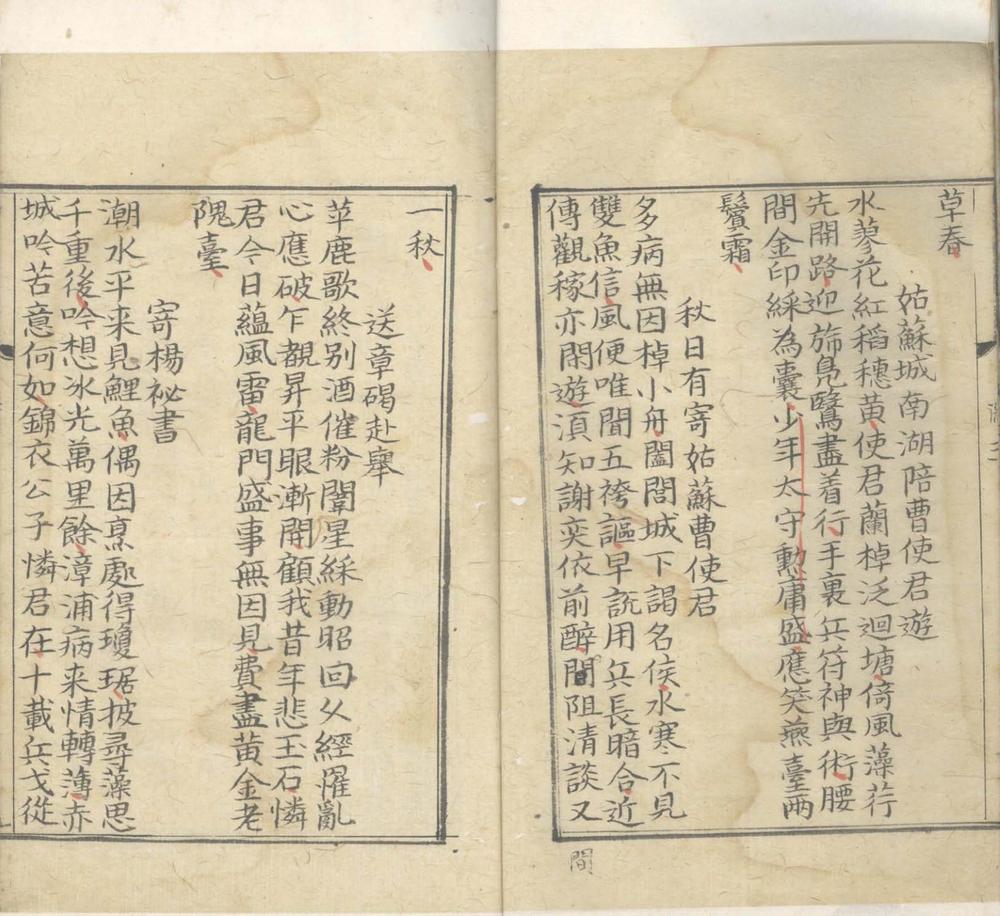 草春
姑蘇城南湖陪曹使君遊
水蓼花紅稻穗黃使君蘭棹泛迴塘倚風藻荇
先開路迎斾鳧鷖盡着行手裏兵符神與術腰
間金印綵為囊少年太守勲庸盛應笑燕臺兩
鬢霜
秋日有寄姑蘇曹使君
多病無因棹小舟闔閭城下謁名侯水寒不見
雙魚信風便唯聞五袴謳早說用兵長暗合近
傳觀稼亦閑遊須知謝奕依前醉間阻清談又
間
一秋
送章碣赴舉
苹鹿歌終別酒催粉闈星綵動昭回久經罹亂
心應破乍覩昇平眼漸開顧我昔年悲玉石憐
君今日蘊風雷龍門盛事無因見費盡黃金老
隗臺
寄楊祕書
潮水平来見鯉魚偶因烹處得瓊琚披尋藻思
千重後吟想冰光萬里餘漳浦病来情轉薄赤
城吟苦意何如錦衣公子憐君在十載兵戈從